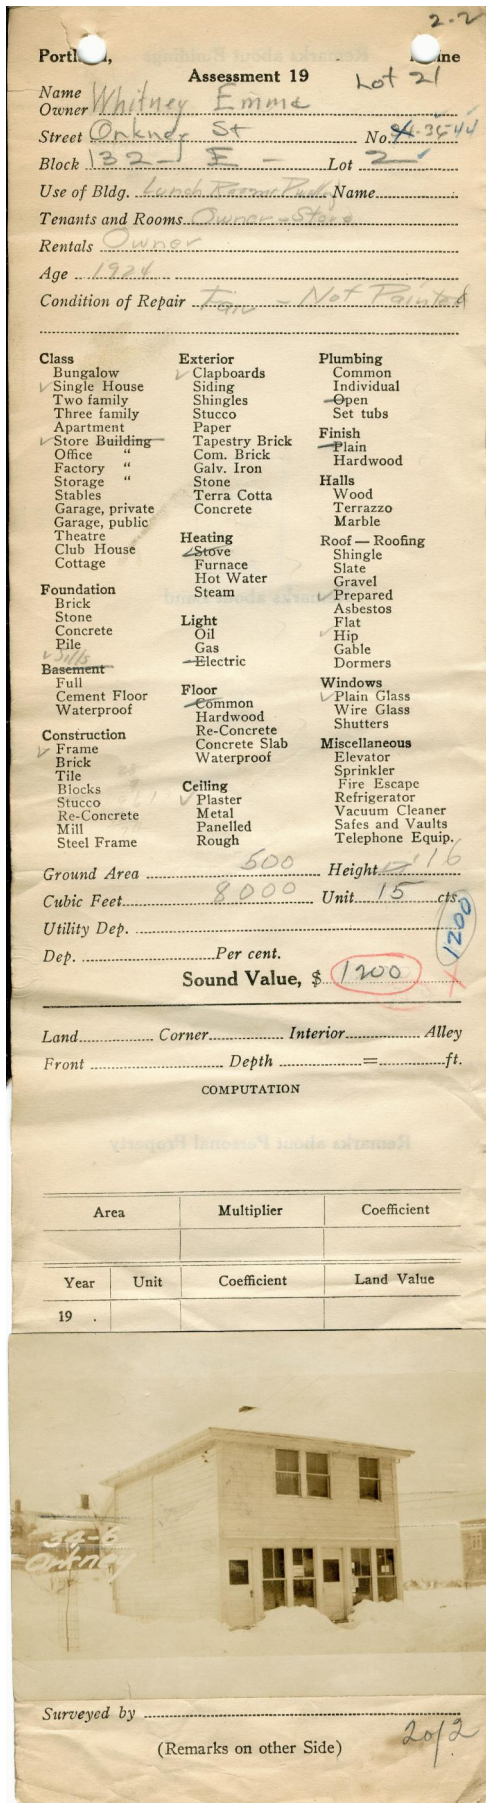 2-2
Portland, Maine
Assessment 19
Lot 21
Name
Owner Whitney Emma
Street Orkney St No. 34-36 44
Block 132 - E - Lot 2
Use of Bldg. Lunch Room Name
Tenants and Rooms Owner - Store
Rentals Owner
Age 1924
Condition of Repair Fair - Not Painted
Class
✓ Bungalow
✓ Single House
Two family
Three family
Apartment
✓ Store Building
Office "
Factory "
Storage "
Stables
Garage, private
Garage, public
Theatre
Club House
Cottage
Foundation
Brick
Stone
Concrete
Pile
✓ Sills
Basement
Full
Cement Floor
Waterproof
Construction
✓ Frame
Brick
Tile
Blocks
Stucco
Re-Concrete
Mill
Steel Frame
Exterior
✓ Clapboards
Siding
Shingles
Stucco
Paper
Tapestry Brick
Com. Brick
Galv. Iron
Stone
Terra Cotta
Concrete
Heating
✓ Stove
Furnace
Hot Water
Steam
Light
Oil
Gas
Electric
Floor
Common
Hardwood
Re-Concrete
Concrete Slab
Waterproof
Ceiling
✓ Plaster
Metal
Panelled
Rough
Plumbing
Common
Individual
Open
Set tubs
Finish
Plain
Hardwood
Halls
Wood
Terrazzo
Marble
Roof — Roofing
Shingle
Slate
Gravel
✓ Prepared
Asbestos
Flat
✓ Hip
Gable
Dormers
Windows
✓ Plain Glass
Wire Glass
Shutters
Miscellaneous
Elevator
Sprinkler
Fire Escape
Refrigerator
Vacuum Cleaner
Safes and Vaults
Telephone Equip.
Ground Area 500 Height 16
Cubic Feet 8000 Unit 15 cts.
Utility Dep.
1200
Dep. Per cent.
Sound Value, $ 1200
Land Corner Interior Alley
Front Depth = ft.
COMPUTATION
Area Multiplier Coefficient
Year Unit Coefficient Land Value
19 .
34-6
Orkney
Surveyed by
2 of 2
(Remarks on other Side)